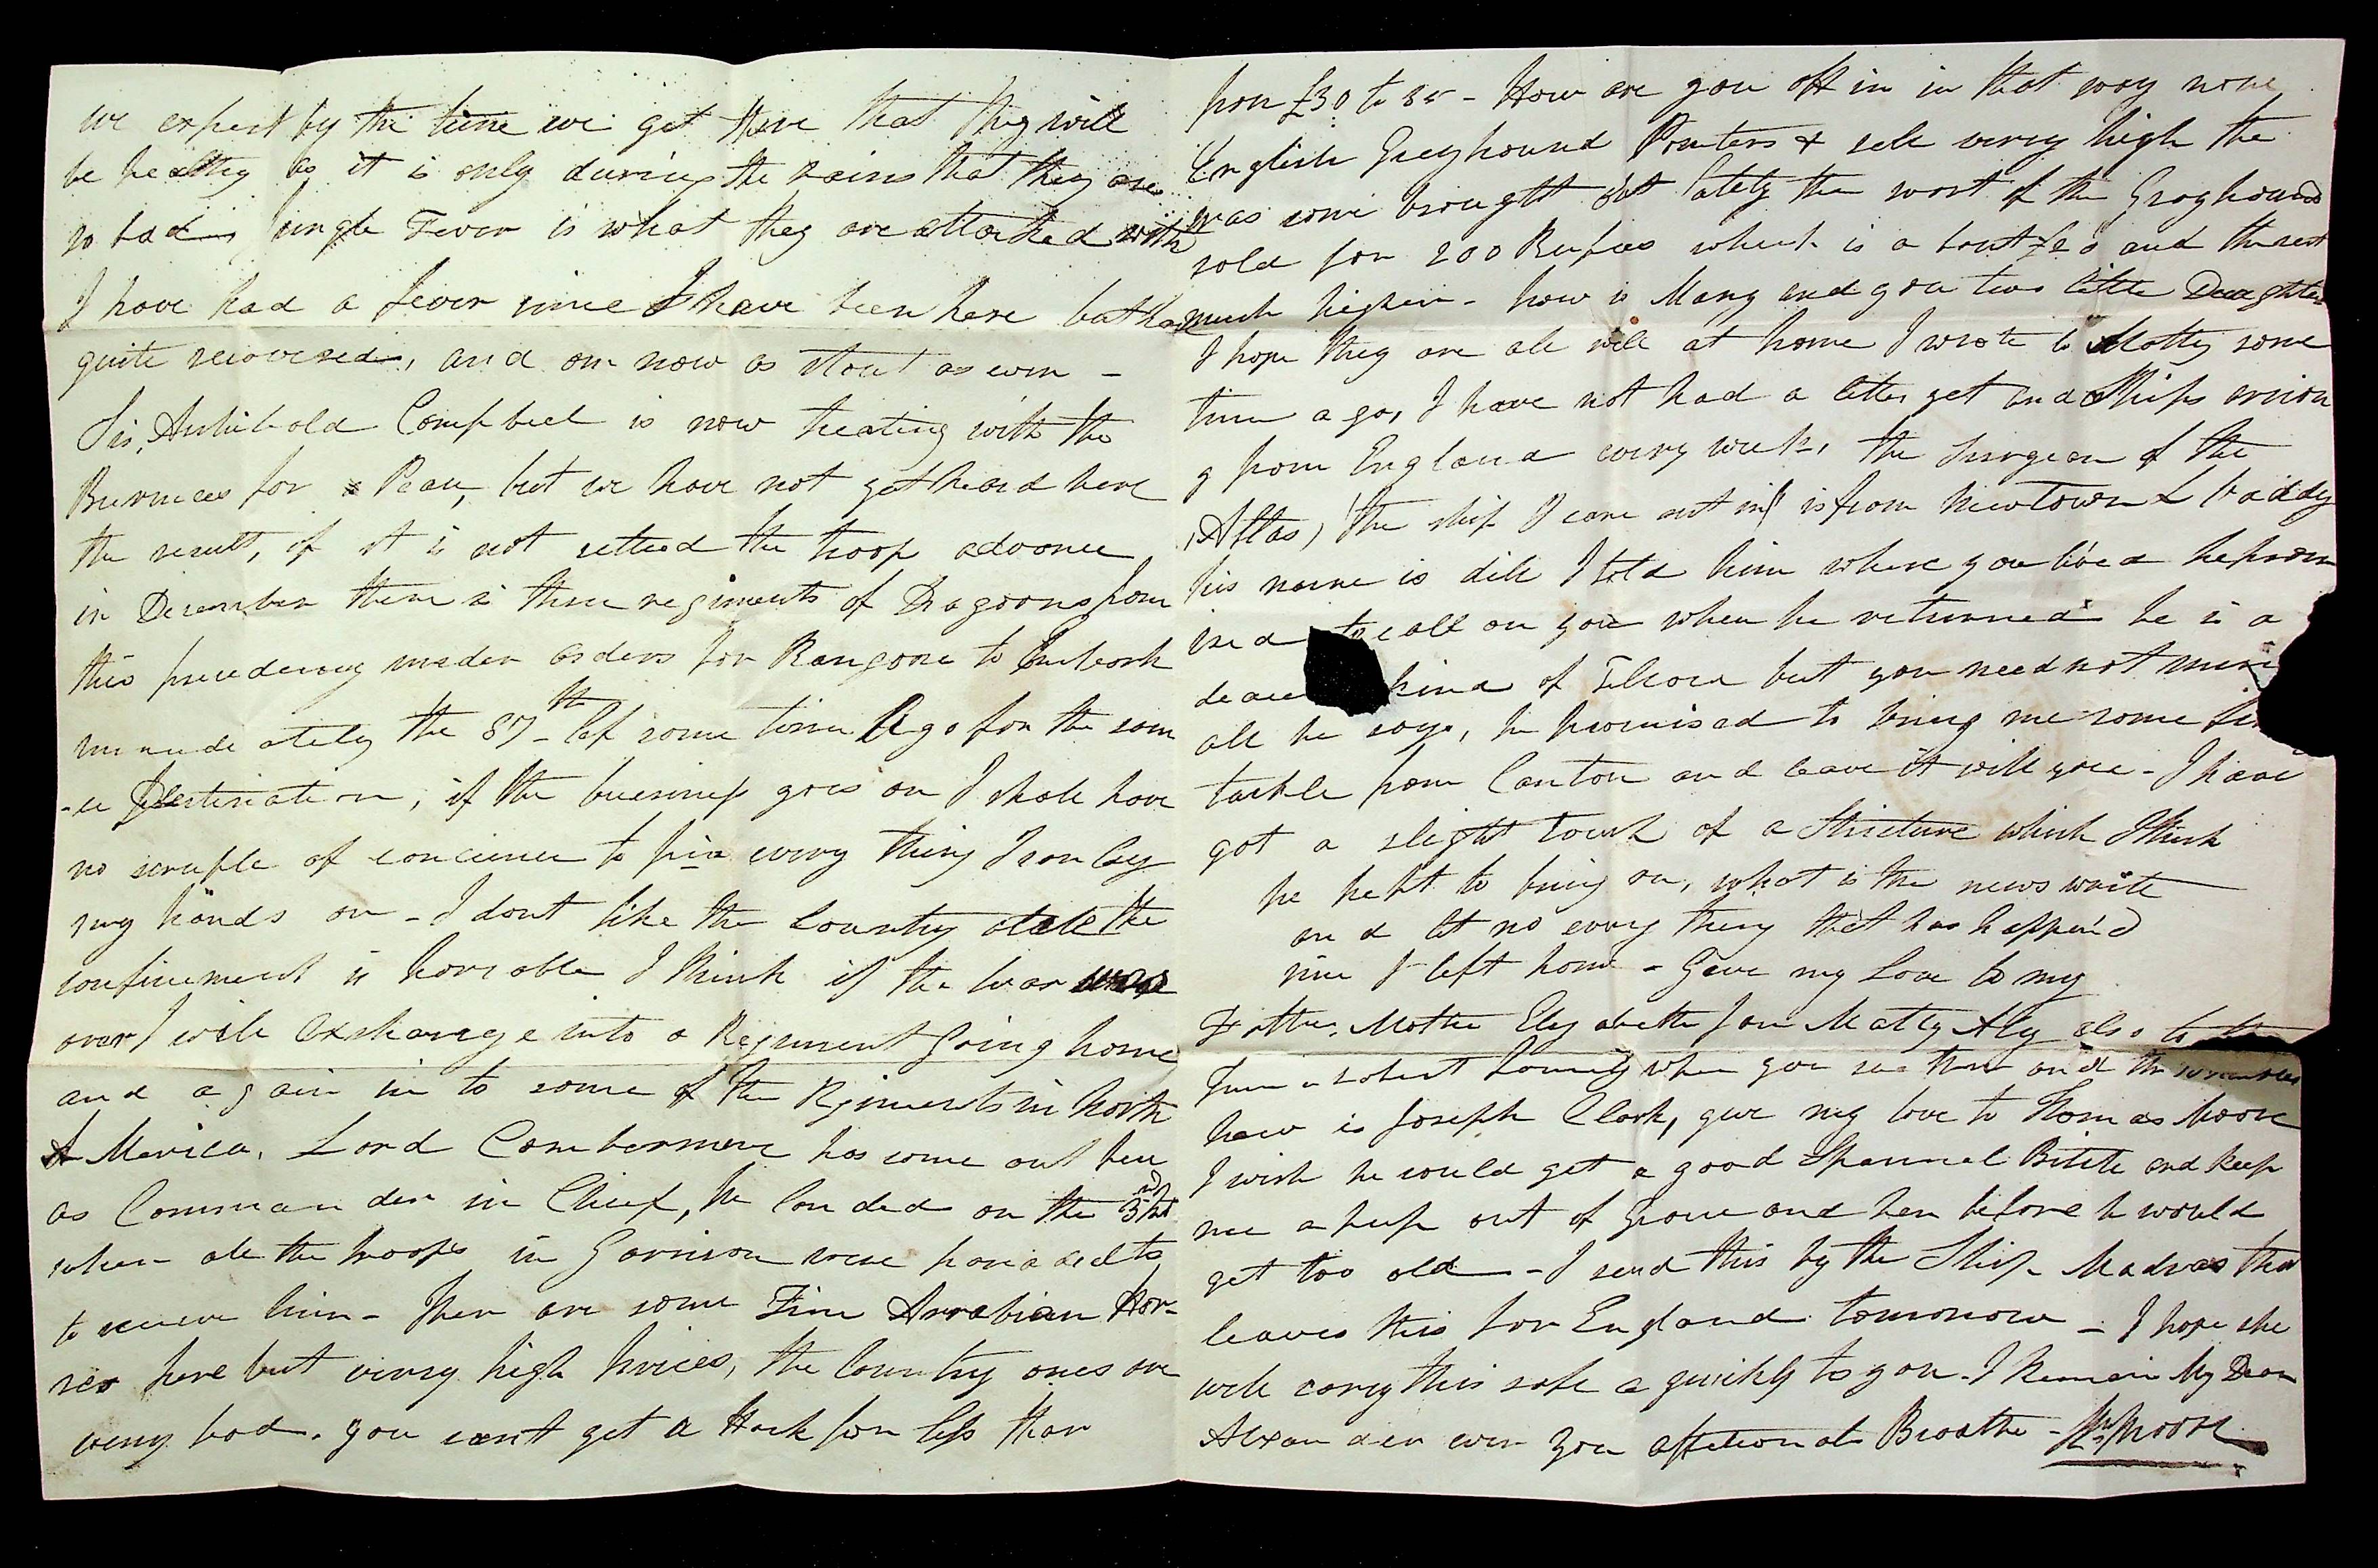 we expect by the time we get there that they will
be healthy as it is only during the rains that they are
so bad Jungle Fever is what they are attacked with
I have had a fever since I have been here but had
quite recovered, and am now as stout as ever -
Sir, Archibold Campbell is now treating with the
Burmees for a Peace, but we have not yet heard here
the result, if it is not setteed the troop advance
in December there is three regiments of Dragoons from
this precedency under orders for Rangone to Embark
immediately the 87th left some time ago for the sam
-e Destination, if the buisiness goes on I shall have
no scruple of concience to fix every thing I can lay
my hands on - I dont like the Country atall the
confinement is horrable I think if the war was
over I will Exchange into a Regiment going home
and again in to some of the Regiments in North
AMerica. Lord Combermere has come out here
as Commander in Chief, he landed on the 3rd
when all the troops in Garrison were paraded to
to receive him - Ther are some Fine Arrabian Hor-
ses here but verry high prices, the Country ones are
verry bad. you cant get a Hack for less than
from £30 to 35 - How are you off in in that way now
English Greyhound Pointers & sell verry high the
was some brought out lately the worst of the Grayhound
sold for 200 Rupees which is about £20 and the rest
much higher - how is Mary and you two little Daughters
I hope they are all well at home I wrote to Matty some
time ago, I have not had a letter yet and Ships arrivin
g from England every week, the Surgeon of the
(Atlas) the ship I came out in is from Newtown
his name is dill I told him where you lived he prom
ised to call on you when he returned he is a
kind of Fellow but you need not mind
all he says, he promised to bring me some
tackle from Canton and leave it with you - I have
got a slight touch of a Stricture which I think
he helpt to bring on, what is the news write
and let no every thing that has happen'd
since I left home - Give my love to my
Father, Mother Elizabeth Jan Matty Aly also to
when you see them and the
how is Joseph Clark, give my love to Thomas Moore
I wish he would get a good Spannel Bitch and keep
me a pup out of Grove and her before he would
get too old - I send this by the Ship Madras that
leaves this for England tomorrow - I hope she
will carry this safe & quickly to you. I Remain My Dear
Alexander ever your affectionate Broathe - Wm Moore